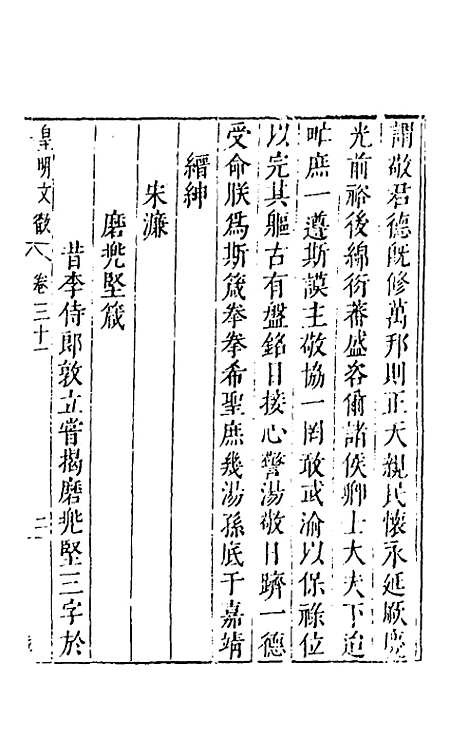 謂敬君德旣修萬邦則正天親民懷永延厥慶
光前裕後綿衍蕃盛咨爾諸侯卿士大夫下迨
甿庶一遵斯謨主敬協一罔敢或渝以保祿位
以完其軀古有盤銘目接心警湯敬日躋一德
受命朕爲斯箴拳拳希聖庶幾湯孫底于嘉靖
縉紳
朱濂
磨兠堅箴
昔李侍郎敦立嘗揭磨兠堅三字於
皇明文徵 卷三十一 二